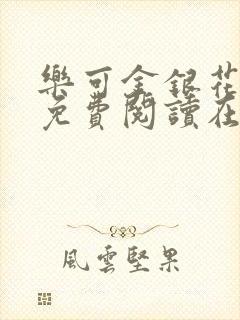 樂可金銀花
免費閱讀在
風雲堅果